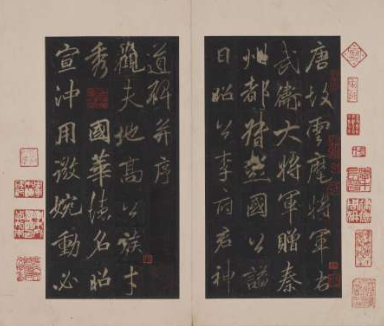 唐故雲麾將軍右
武衛大將軍贈秦
州都督彭國公謚
曰昭公李府君神
道碑并序
觀夫地高公族才
秀國華德名昭
宣沖用微婉動必